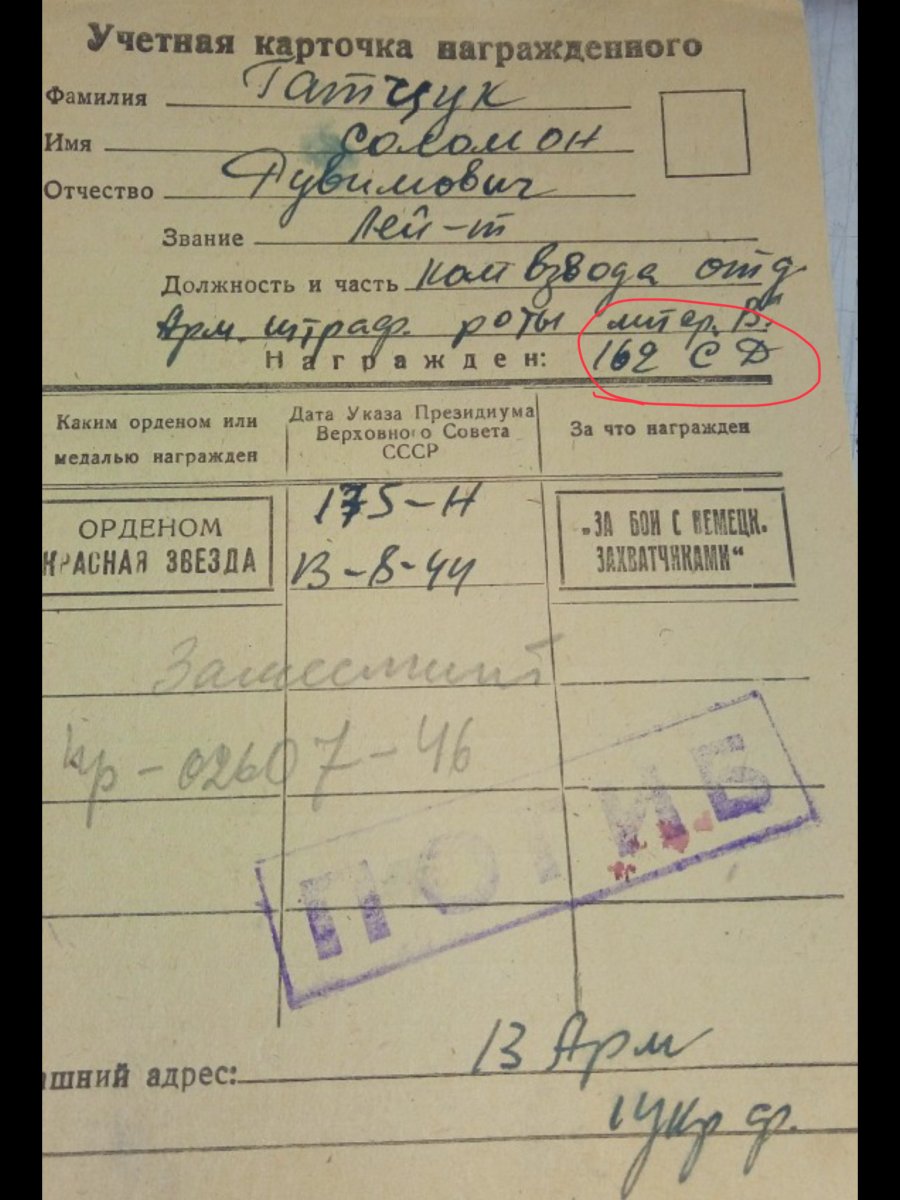 Учетная карточка награжденного
Фамилия Гатчук
Имя Соломон
Отчество Рувимович
Звание Лей-т
Должность и часть Ком взвода отд
Арм. штраф. роты литер. "В"
Награжден: 162 СД
Каким орденом или медалью награжден
Дата Указа Президиума Верховного Совета СССР
За что награжден
ОРДЕНОМ КРАСНАЯ ЗВЕЗДА
175-Н
13-8-44
„ЗА БОИ С НЕМЕЦК. ЗАХВАТЧИКАМИ“
пр-02607-46
ПОГИБ
ашний адрес: 13 Арм
1 Укр ф.